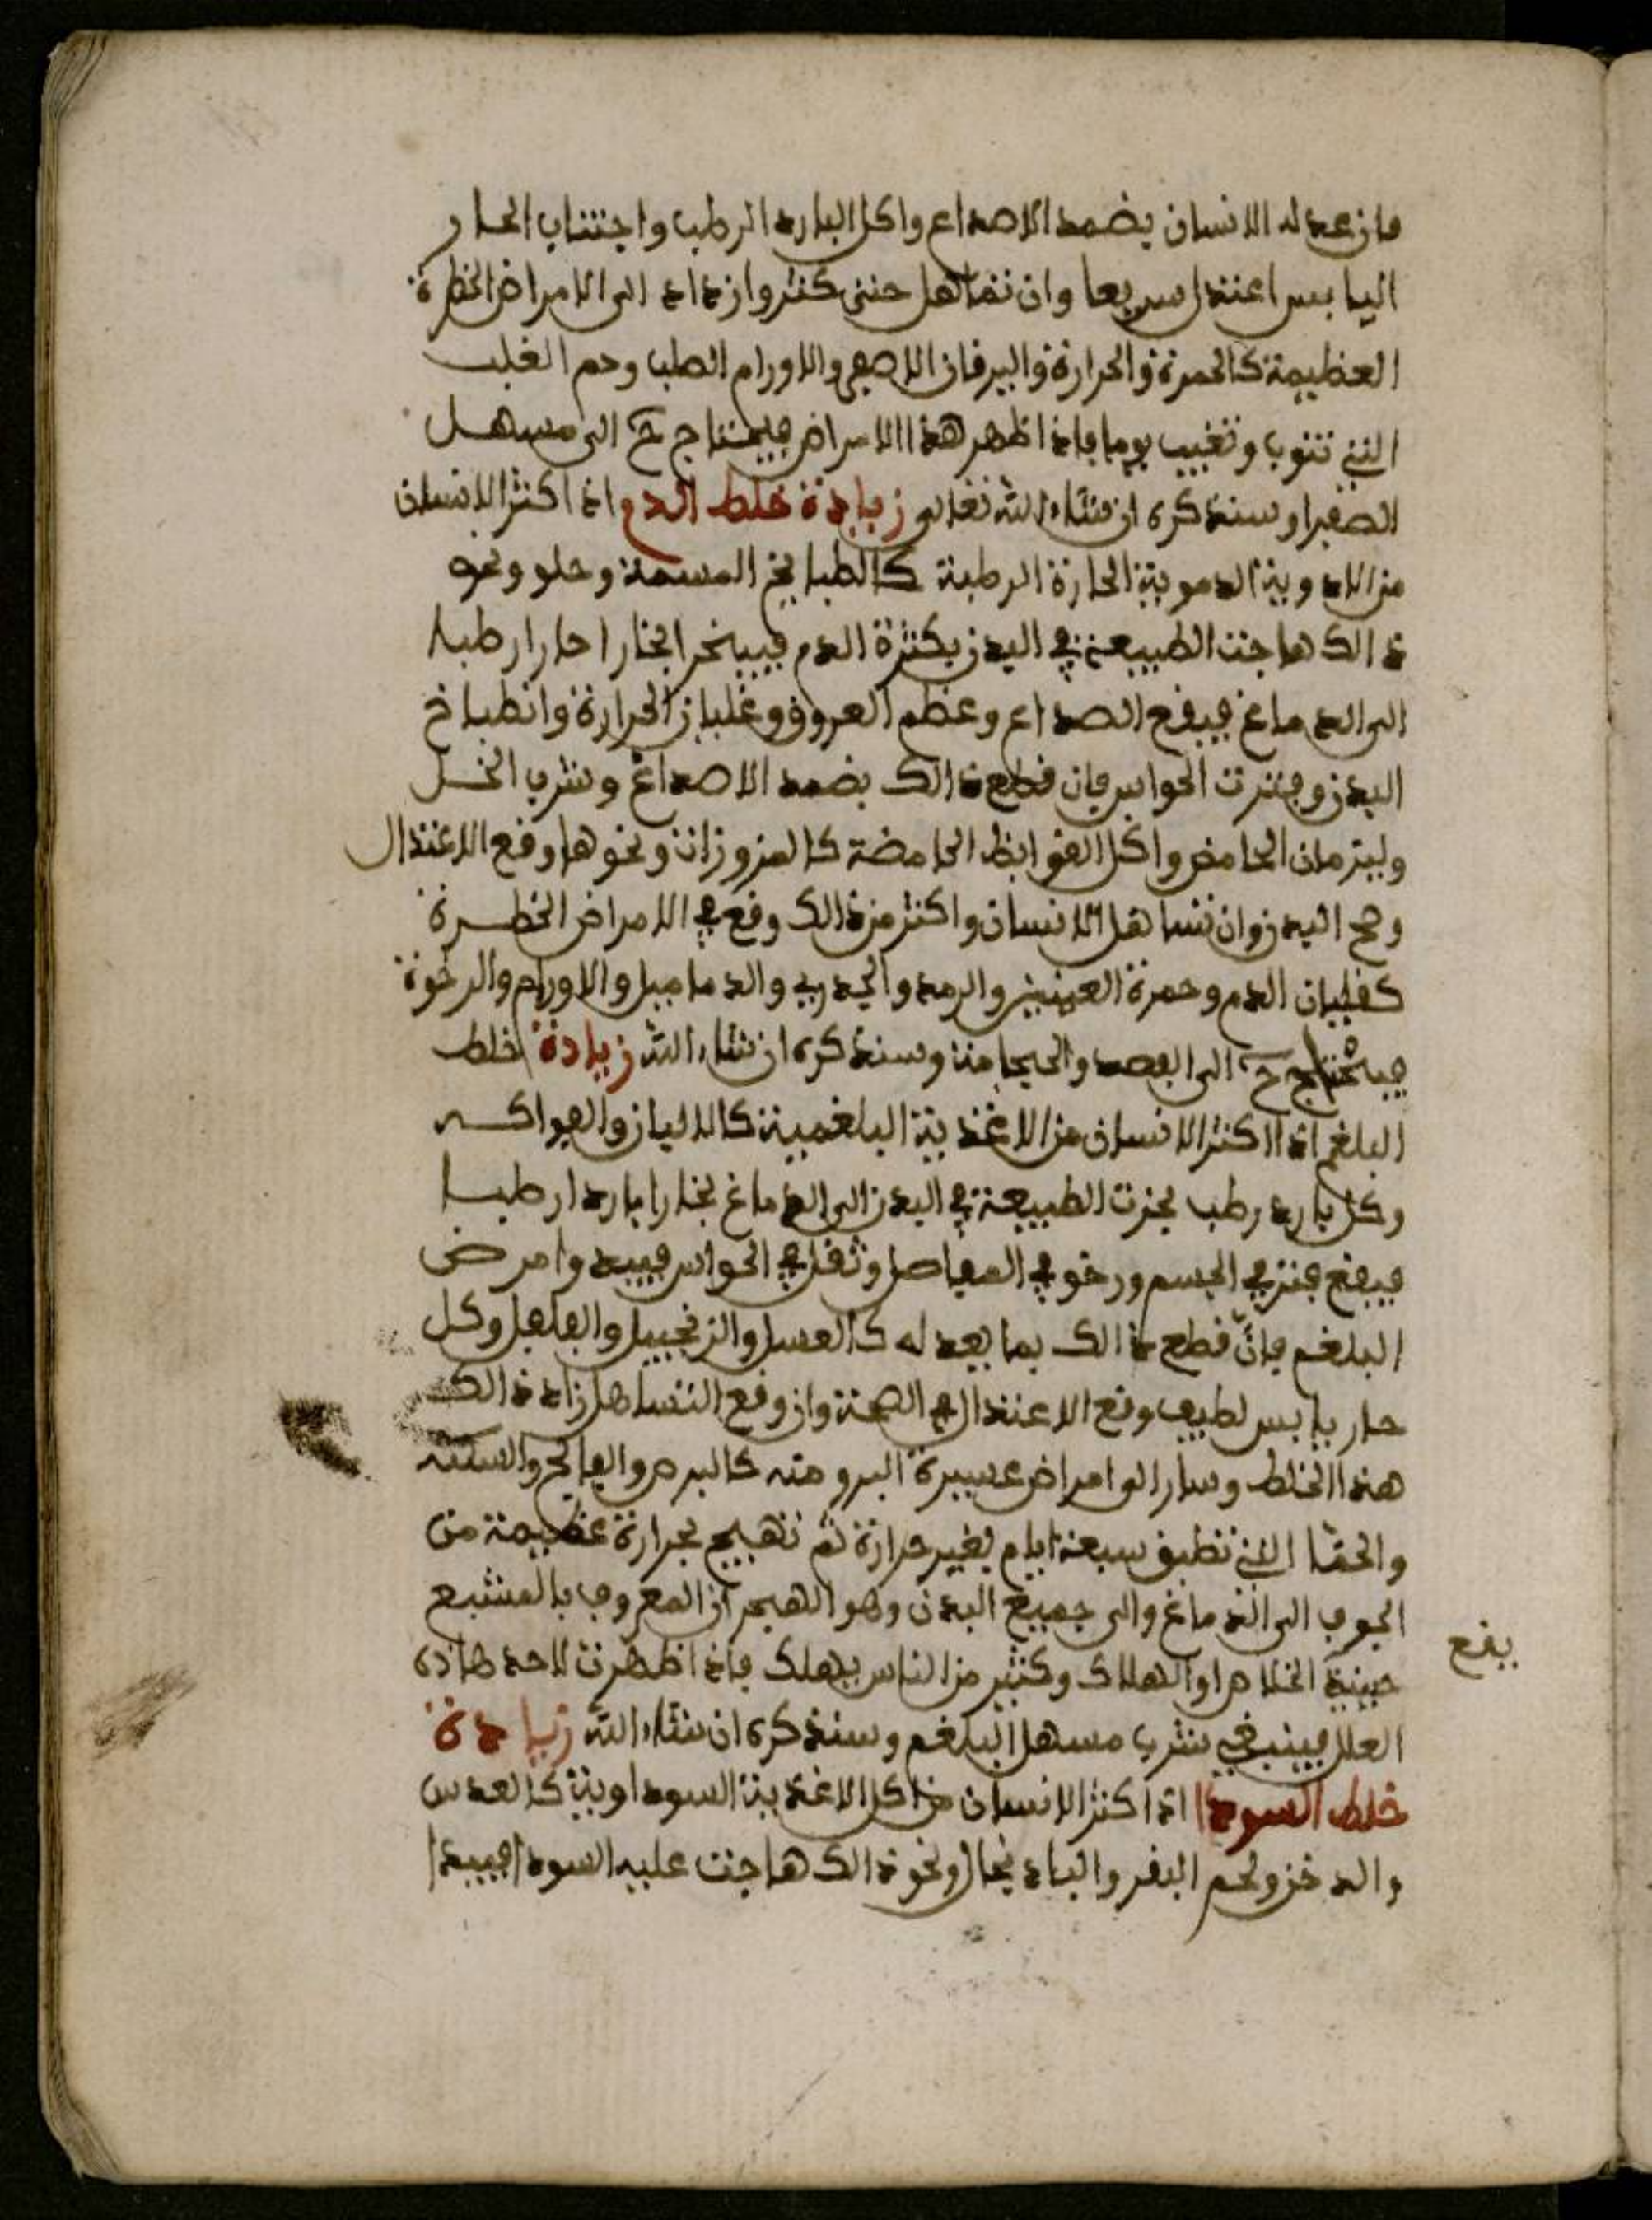 فان عدله الانسان بضمد الاصداع واكل البارد الرطب واجتناب الحار
اليابس اعتدل سريعا وان تساهل حتى كثر وازداد الى الامراض الخطرة
العظيمة كالحمرة والحرارة واليرقان الاصفر والاورام الصلب وحم الغلب
التي تنوب وتغيب يوما فاذا ظهر هذا الامراض فيحتاج ح الى مسهل
الصفرا وسنذكره ان شاء الله تعالى زيادة خلط الدم اذا اكثر الانسان
من الادوية الدموية الحارة الرطبة كالطبايخ المسمة وحلو ونحو
ذالك هاجت الطبيعة في البدن بكثرة الدم فيبخر ابخارا حارا رطبا
الى الدماغ فيقع الصداع وعظم العروق وغلبان الحرارة وانطباخ
البدن وفترت الحواس فان قطع ذالك بضمد الاصداغ وشرب الخل
وليترمان الحامض واكل القوابظ الحامضة كالمزوزات ونحوها وقع الاعتدال
وصح البدن وان تساهل الانسان واكثر من ذالك وقع في الامراض الخطرة
كغليان الدم وحمرة العينين والرمد والجدري والدماميل والاورام والرخوة
فيحتاج ح الى الفصد والحجامة وسنذكره ان شاء الله زيادة خلط
البلغم اذا اكثر الانسان من الاغذية البلغمية كالالبان والفواكه
وكل بارد رطب بخرت الطبيعة في البدن الى الدماغ بخارا باردا رطبا
فيقع فتر في الجسم ورخو في المفاصل وثقل في الحواس فيبدوا مرض
البلغم فان قطع ذالك بما يعدله كالعسل والزنجبيل والفلفل وكل
حار يابس لطيف وقع الاعتدال في الصحة وان وقع التساهل زاد ذالك
هذا الخلط وسار الى امراض عسيرة البرو منه كالبرص والفالج والسكته
والحقا التي تطبق سبعة ايام بغير حرارة ثم تهيج بحرارة عظيمة من
الجوف الى الدماغ والى جميع البدن وهو الهيجران المعروف بالمشبع
يقع
حينية الخلاص او الهلاك وكثير من الناس يهلك فاذا ظهرت لاحد هاذه
العلل فينبغي شرب مسهل البلغم وسنذكره ان شاء الله زيادة
خلط السودا اذا اكثر الانسان من اكل الاغذية السوداوية كالعدس
والدخن ولحم البقر والباذنجال ونحو ذالك هاجت عليه السودا فيبدا